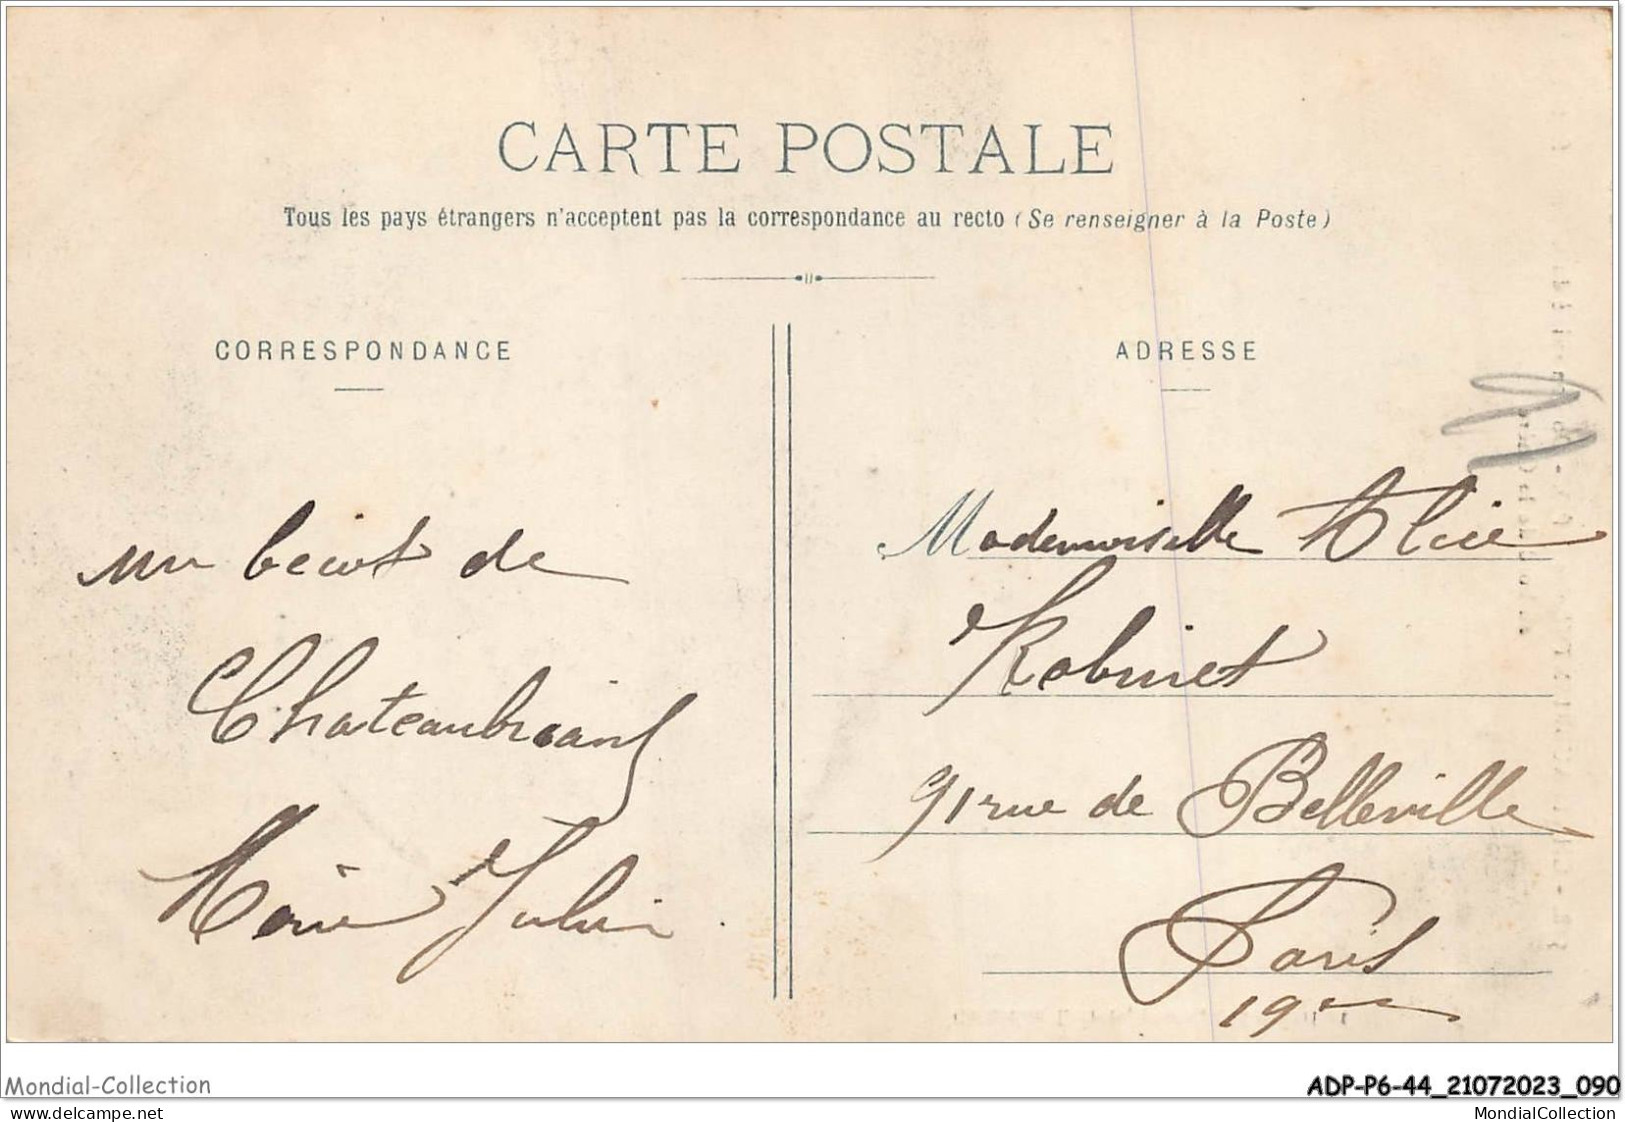 CARTE POSTALE
Tous les pays étrangers n'acceptent pas la correspondance au recto (Se renseigner à la Poste)
CORRESPONDANCE
un de
Chateaubriant
Marie Julien
ADRESSE
Mademoiselle Alice
Robinet
91 rue de Belleville
Paris
19me
Mondial-Collection
ADP-P6-44_21072023_090
www.delcampe.net
MondialCollection